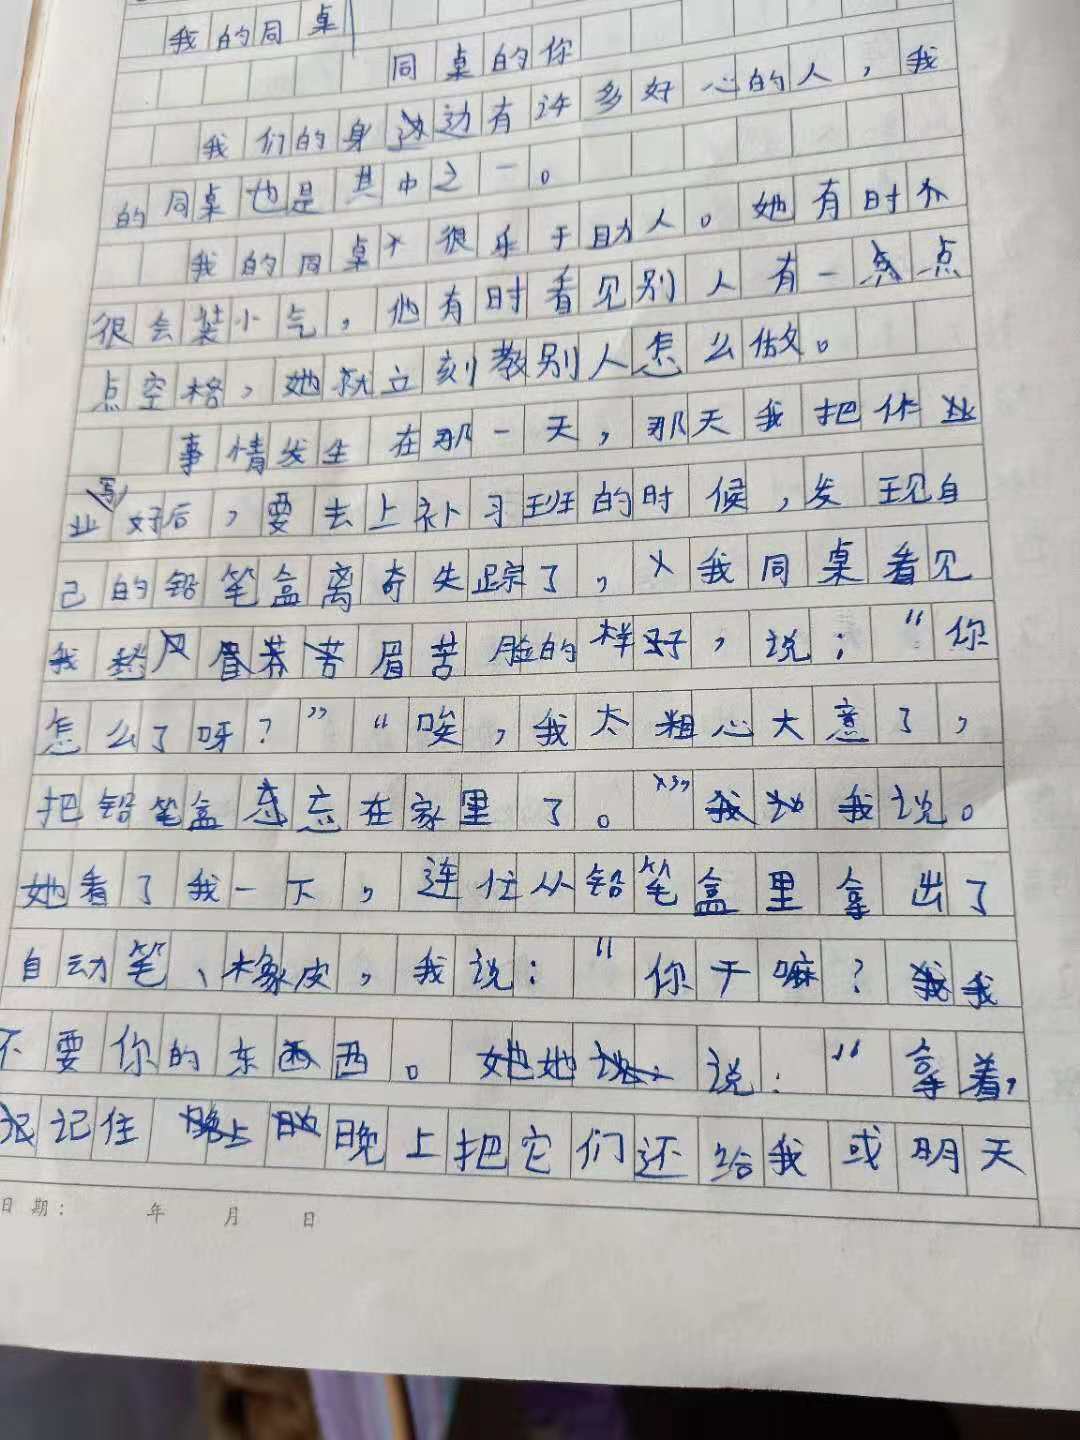 我的同桌
同桌的你
我们的身边有许多好心的人，我
的同桌也是其中之一。
我的同桌很乐于助人。她有时不
很会装小气，他有时看见别人有一点
点空格，她就立刻教别人怎么做。
事情发生在那一天，那天我把作
业写好后，要去上补习班的时候，发现自
己的铅笔盒离奇失踪了，我同桌看见
我愁眉苦脸的样子，说：“你
怎么了呀？”“唉，我太粗心大意了，
把铅笔盒忘在家里了。”我说。
她看了我一下，连忙从铅笔盒里拿出了
自动笔、橡皮，我说：“你干嘛？我
不要你的东西。她说：“拿着，
记住晚上把它们还给我或明天
日期： 年 月 日